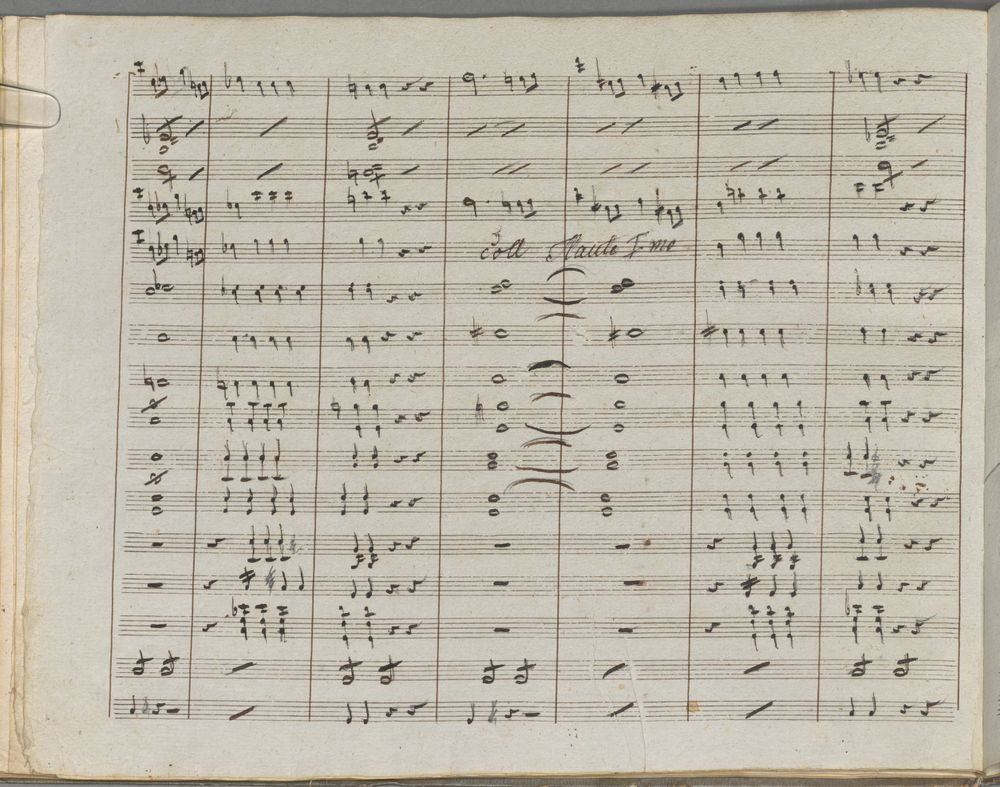 coll Flauto Imo